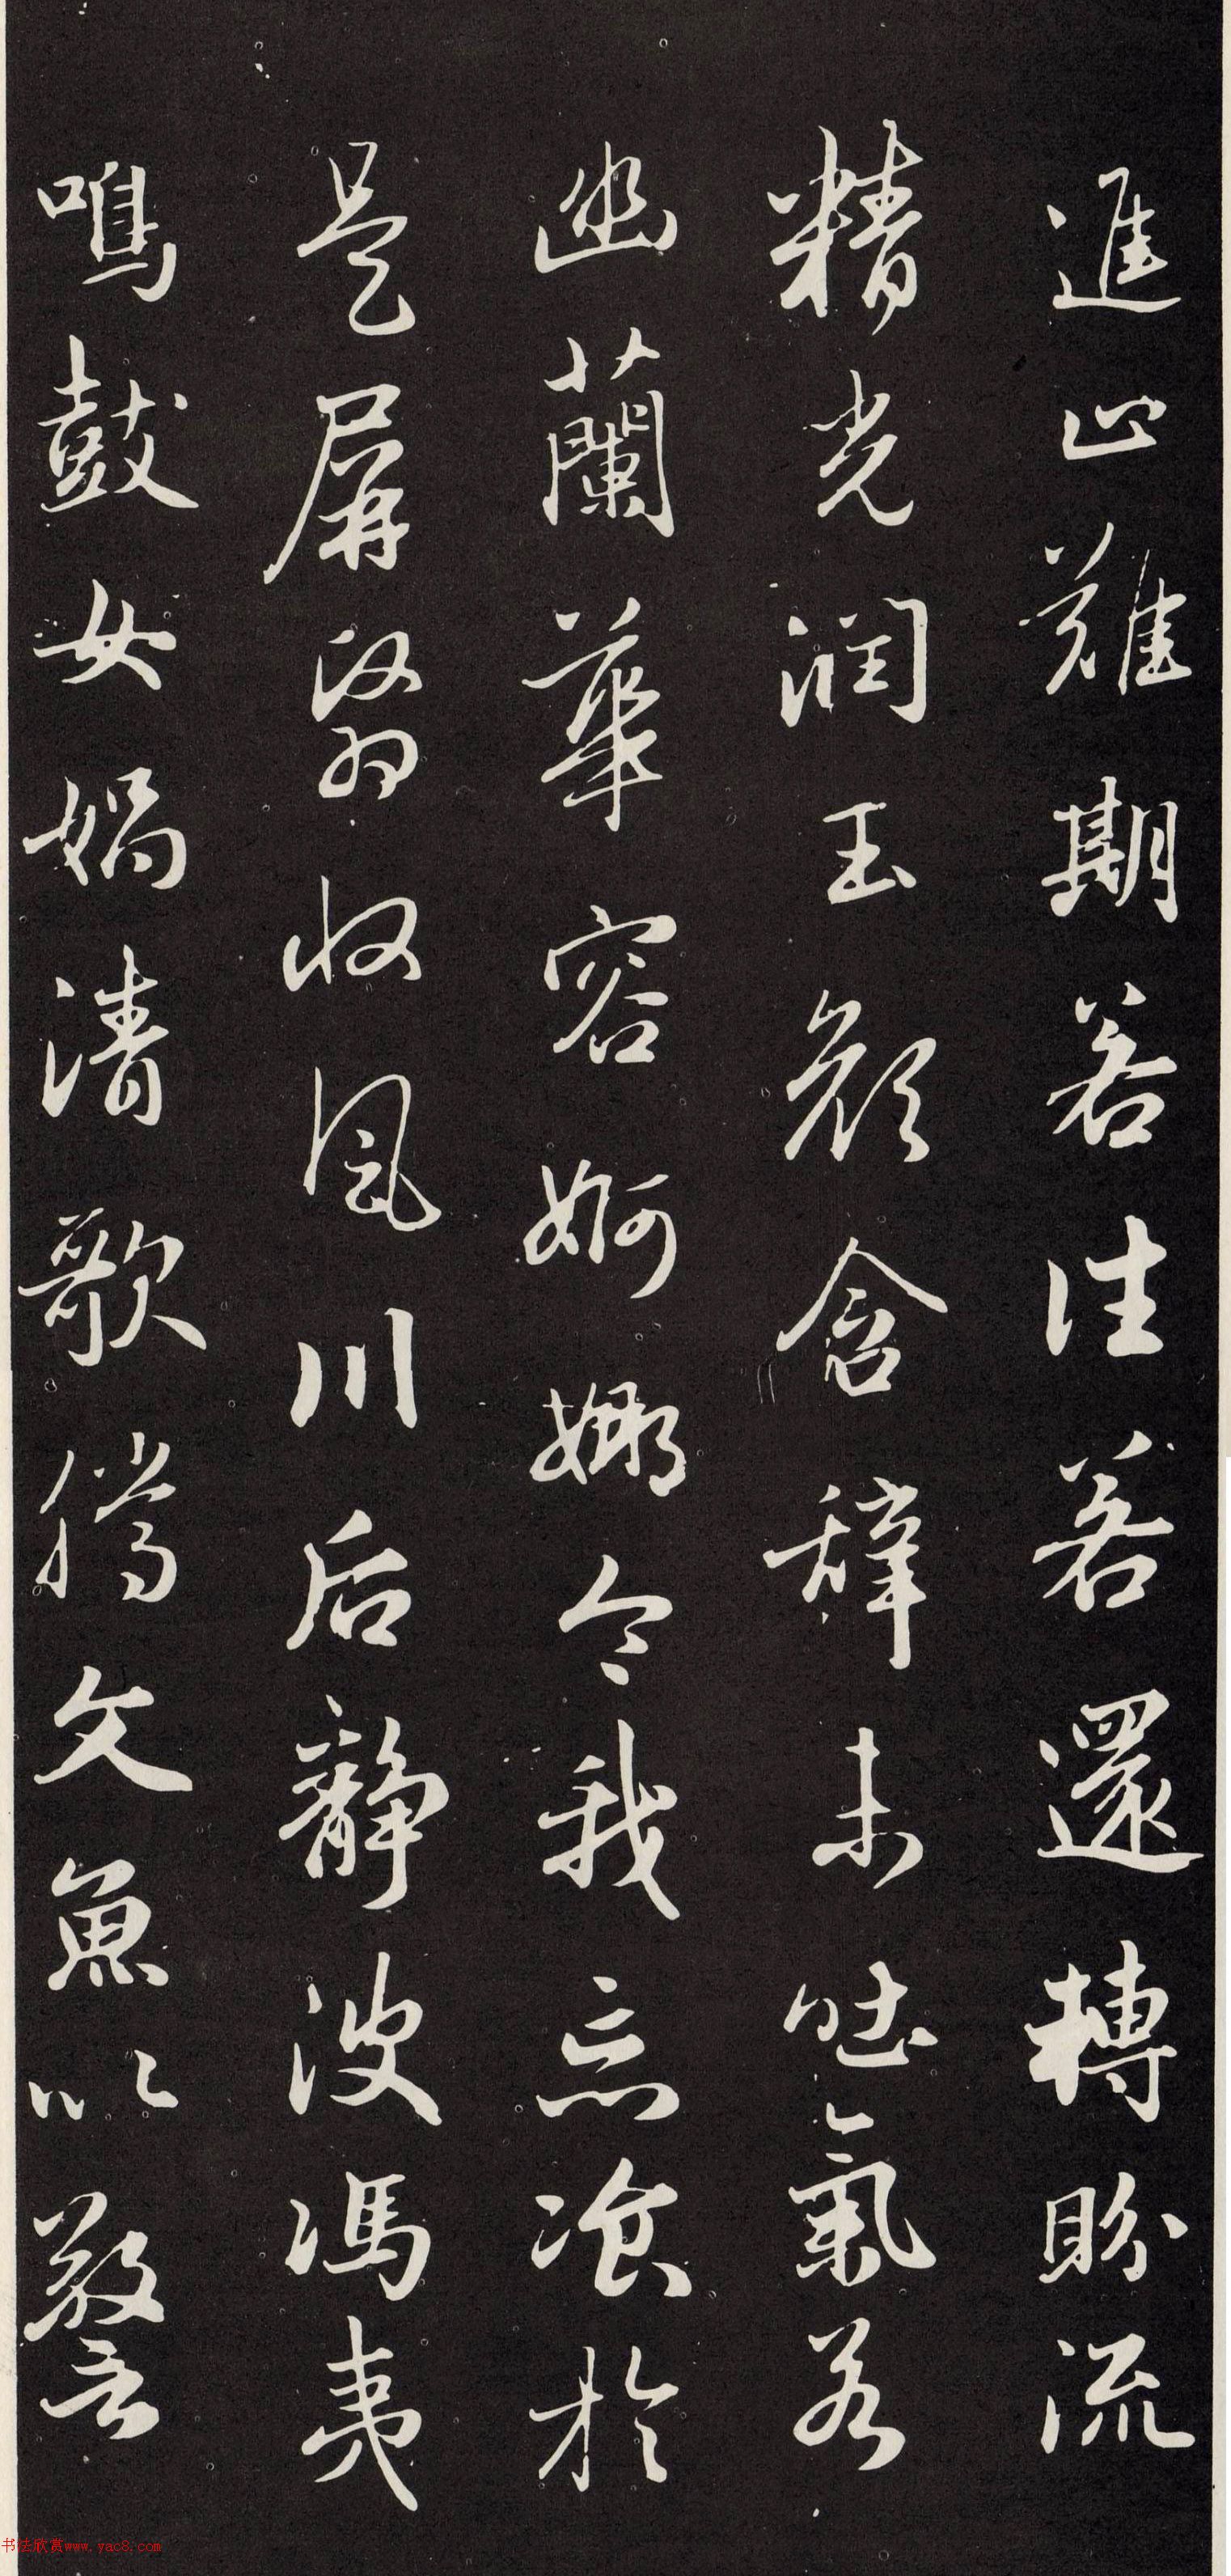 進止難期若往若還轉盼流
精光潤玉顔含辞未吐氣若
幽蘭華容婀娜令我忘飡於
是屏翳收風川后静波馮夷
鳴鼓女媧清歌騰文魚以警
书法欣赏www.yac8.com